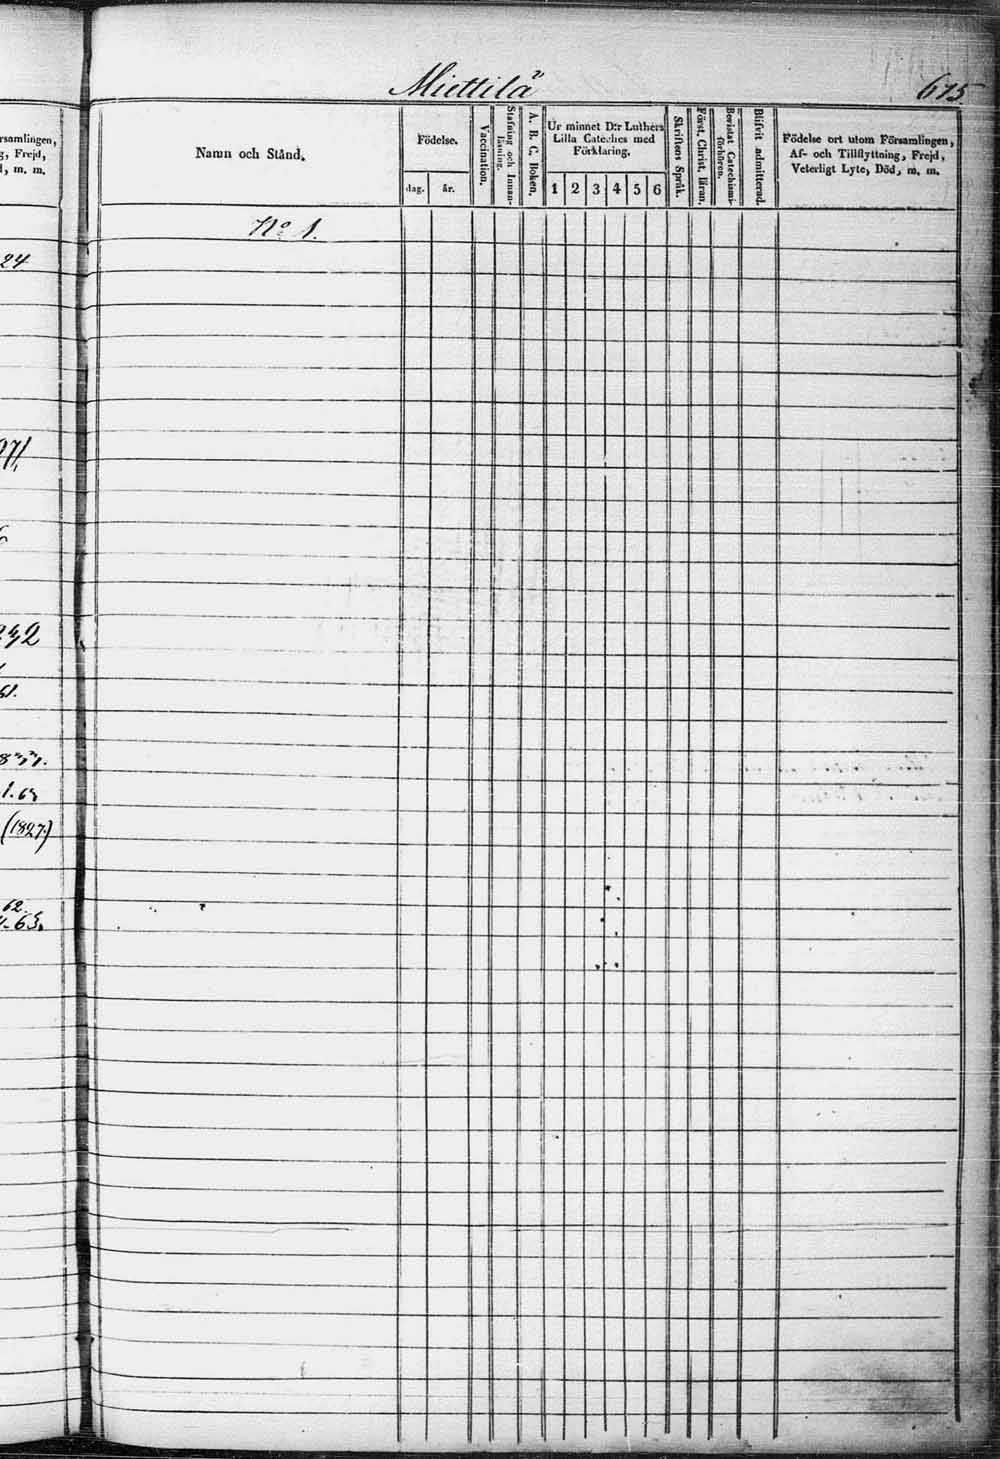 Miettilä
615
rsamlingen,
g, Frejd,
l, m. m.
Namn och Stånd.
Födelse.
dag.
år.
Vaccination.
Stafning och Innan-
läsning.
A. B. C. Boken.
Ur minnet D:r Luthers
Lilla Cateches med
Förklaring.
1 2 3 4 5 6
Skriftens Språk.
Först. Christ. läran.
Bevistat Catechismi-
förhören.
Blifvit admitterad.
Födelse ort utom Församlingen,
Af- och Tillflyttning, Frejd,
Veterligt Lyte, Död, m. m.
No 1.
24
71
61.
1.63
(1827)
62.
63.